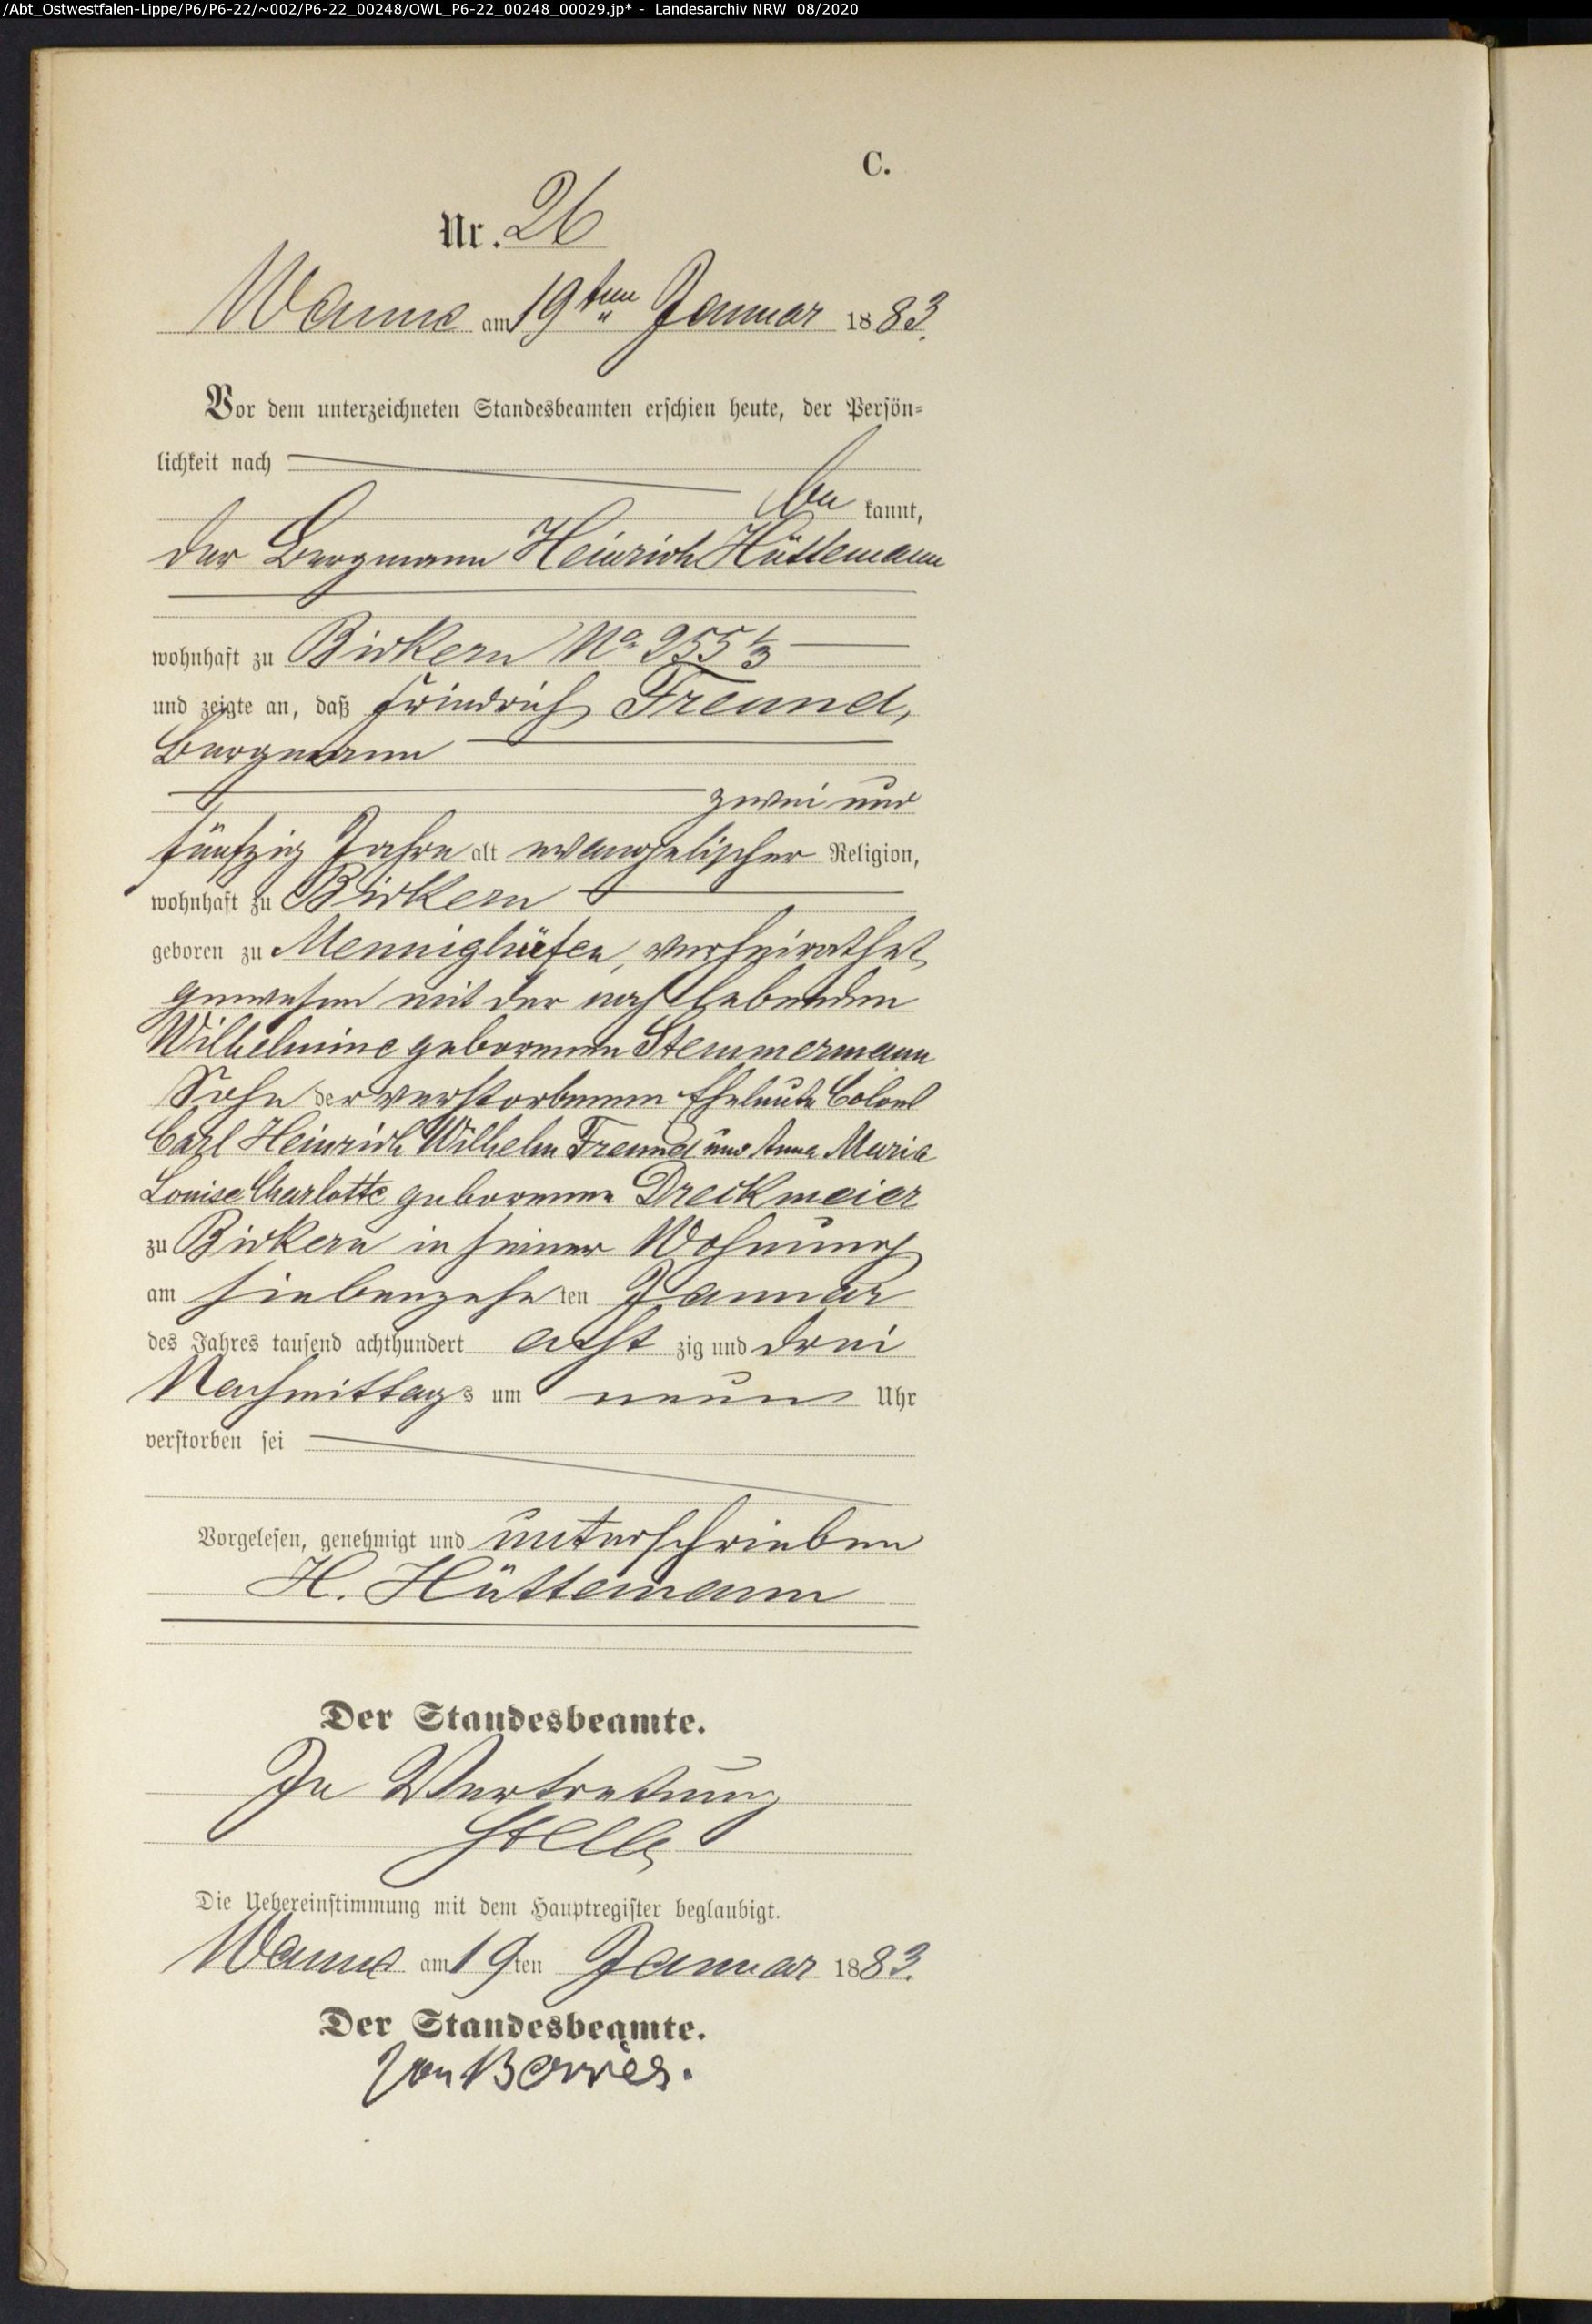 /Abt_Ostwestfalen-Lippe/P6/P6-22/~002/P6-22_00248/OWL_P6-22_00248_00029.jp* - Landesarchiv NRW 08/2020
C.
Nr. 26
Wanne am 19ten Januar 1883.
Vor dem unterzeichneten Standesbeamten erschien heute, der Persön=
lichkeit nach
be kannt,
der Bergmann Heinrich Hüttemann
wohnhaft zu Bickern No 255 1/3
und zeigte an, daß Friedrich Freund,
Bergmann
zwei und
fünfzig Jahre alt evangelischer Religion,
wohnhaft zu Bickern
geboren zu Mennighüfen, verheirathet
gewesen mit der noch lebenden
Wilhelmine geborenen Stemmermann
Sohn der verstorbenen Eheleute Colon
Carl Heinrich Wilhelm Freund und Anna Maria
Louise Charlotte geborenen Dreckmeier
zu Bickern in seiner Wohnung
am siebenzehn ten Januar
des Jahres tausend achthundert acht zig und drei
Nachmittags um neun Uhr
verstorben sei
Vorgelesen, genehmigt und unterschrieben
H. Hüttemann
Der Standesbeamte.
In Vertretung
Die Uebereinstimmung mit dem Hauptregister beglaubigt.
Wanne am 19ten Januar 1883.
Der Standesbeamte.
von Borries.